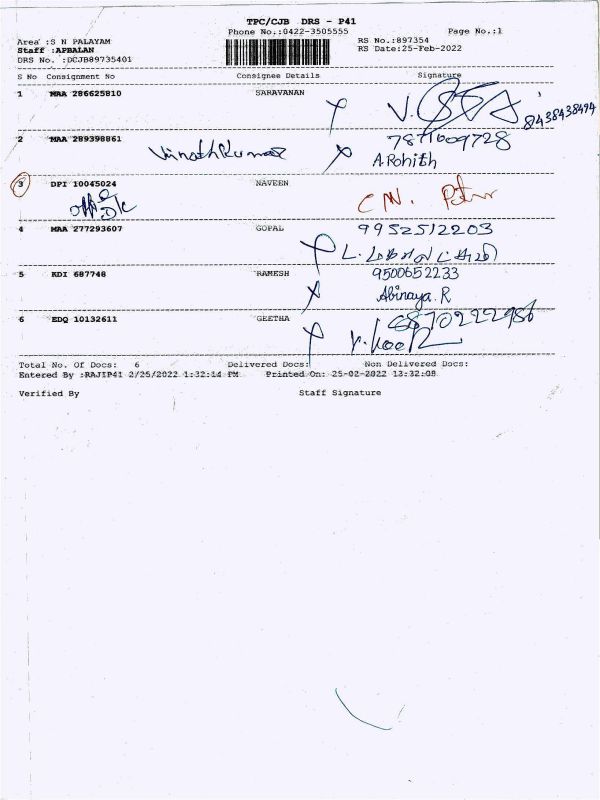 TPC/CJB DRS - P41
Phone No.:0422-3505555 Page No.:1
Area :S N PALAYAM RS No.:897354
Staff :APBALAN RS Date:25-Feb-2022
DRS No. :DCJB89735401
S No Consignment No Consignee Details Signature
1 MAA 286625810 SARAVANAN
8438438494
2 MAA 289398861 7871009728
Vinoth Kumar A. Rohith
3 DPI 10045024 NAVEEN
4 MAA 277293607 GOPAL 9952512203
5 KDI 687748 RAMESH 9500652233
Abinaya. R
6 EDQ 10132611 GEETHA
Total No. Of Docs: 6 Delivered Docs: Non Delivered Docs:
Entered By :RAJIP41 2/25/2022 1:32:14 PM Printed On: 25-02-2022 13:32:08
Verified By Staff Signature